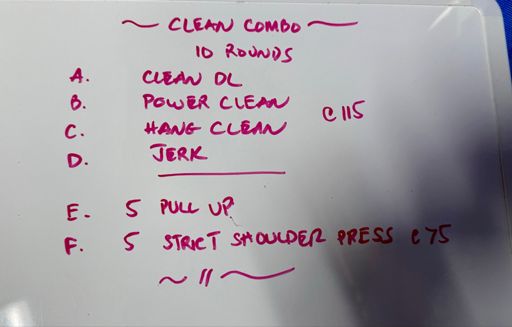 ~ CLEAN COMBO ~
10 ROUNDS
A. CLEAN DL
B. POWER CLEAN
C. HANG CLEAN @ 115
D. JERK
E. 5 PULL UP
F. 5 STRICT SHOULDER PRESS @ 75
~ 11 ~